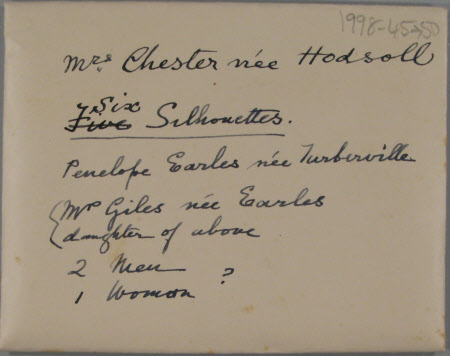 1998-45-50
Mrs Chester née Hodsoll
Six
Five Silhouettes.
Penelope Earles née Turberville
Mrs Giles née Earles
daughter of above
2 Men ?
1 Woman